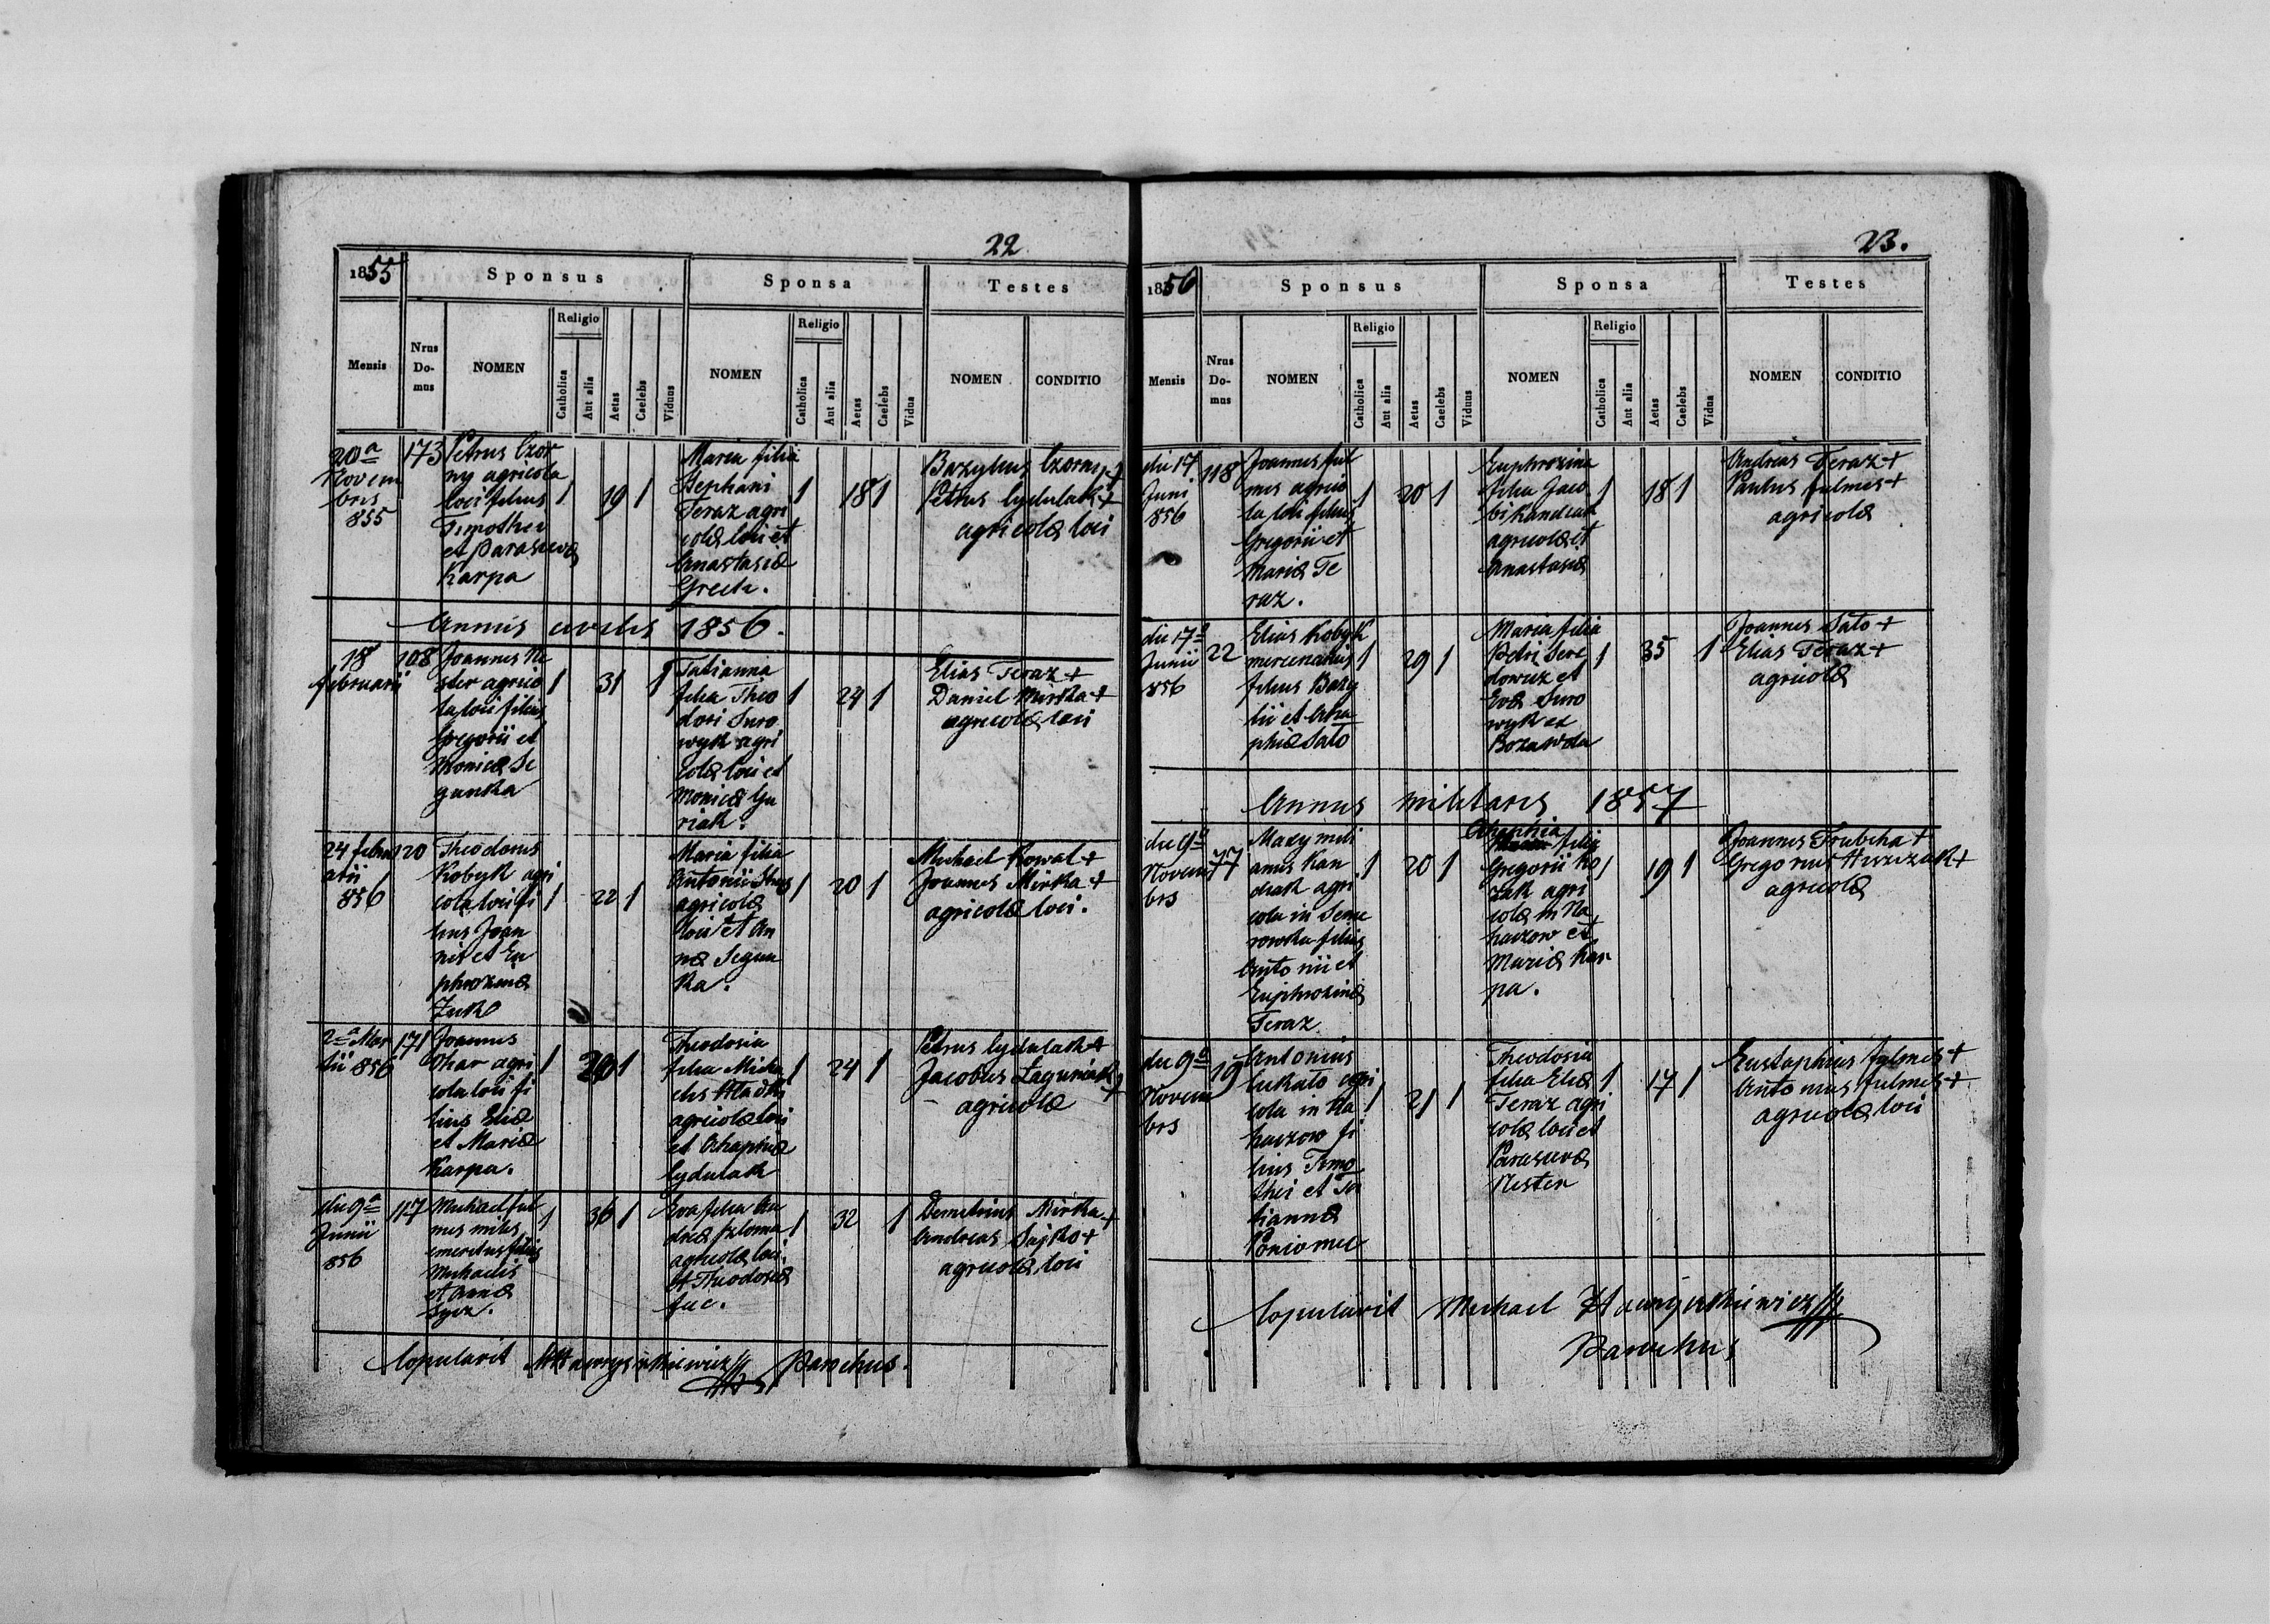 22
1855
Sponsus
Sponsa
Testes
Mensis
Nrus Domus
NOMEN
Religio
Catholica
Aut alia
Aetas
Caelebs
Viduus
NOMEN
Religio
Catholica
Aut alia
Aetas
Caelebs
Vidua
NOMEN
CONDITIO
20a
Novem
bris
855
173
Petrus Czor
ny agricola
loci filius
Timothei
et Parascevæ
Karpa
1
19
1
Maria filia
Stephani
Teraz agri
colæ loci et
Anastasiæ
1
18
1
Bazylius Czorny +
Petrus Cydulak +
agricolæ loci
Annus civilis 1856.
18
februarii
108
Joannes Ne
ster agrico
la loci filius
Gregorii et
Monicæ Se
gunka
1
31
1
Tatianna
filia Theo
dori Suro
wyk agri
colæ loci et
Monicæ Gu
riak.
1
24
1
Elias Teraz +
Daniel Mirka +
agricolæ loci
24 febru
arii
856
120
Theodorus
Kobyk agri
cola loci fi
lius Joan
nis et Eu
phrozinæ
Zuk
1
22
1
Maria filia
Antonii
agricolæ
loci et An
næ Segun
ka.
1
20
1
Michael Kowal +
Joannes Mirka +
agricolæ loci.
2a Mar
tii 856
171
Joannes
Ohar agri
cola loci fi
lius Eliæ
et Mariæ
Karpa.
1
1
Theodosia
filia Micha
elis Hladki
agricolæ loci
et Ahaphiæ
Cydulak
1
24
1
Petrus Cydulak +
Jacobus Laguniak +
agricolæ
die 9a
Junii
856
117
Michael ful
mes miles
emeritus filius
Michaelis
et Annæ
1
36
1
Eva filia An
dreæ
agricolæ loci
et Theodosiæ
1
32
1
Demetrius Mirka +
Andreas Sajko +
agricolæ loci
Copulavit Parochus.
23.
1856
Sponsus
Sponsa
Testes
Mensis
Nrus Domus
NOMEN
Religio
Catholica
Aut alia
Aetas
Caelebs
Viduus
NOMEN
Religio
Catholica
Aut alia
Aetas
Caelebs
Vidua
NOMEN
CONDITIO
die 17
Juni
856
118
Joannes ful
mes agrico
la loci filius
Gregorii et
Mariæ Te
raz.
1
20
1
Euphrozina
filia Jaco
bi Kandiak
agricolæ et
Anastasiæ
1
18
1
Andreas Teraz +
Paulus fulmes +
agricolæ
die 17a
Junii
856
22
Elias Kobyk
mercenarius
filius Bazy
lii et Aha
phiæ Sato
1
29
1
Maria filia
Petri Sere
dowicz et
Evæ Suro
wyk ex
1
35
1
Joannes Sato +
Elias Teraz +
agricolæ
Annus militaris 1857
die 9a
Novem
bris
77
Maxymili
anus Kan
diak agri
cola in Seme
rowka filius
Antonii et
Euphrozinæ
Teraz
1
20
1
Ahaphia
filia
Gregorii Ko
zak agri
colæ in Na
haczow et
Mariæ Kar
pa.
1
19
1
Joannes Trubcha +
Gregorius +
agricolæ
die 9a
Novem
bris
19
Antonius
Lukato agri
cola in Na
haczow fi
lius Timo
thei et Ta
tiannæ
1
21
1
Theodosia
filia Eliæ
Teraz agri
colæ loci et
Parascevæ
Nester
1
17
1
Eustaphius fulmes +
Antonius fulmes +
agricolæ loci
Copulavit Michael
Parochus